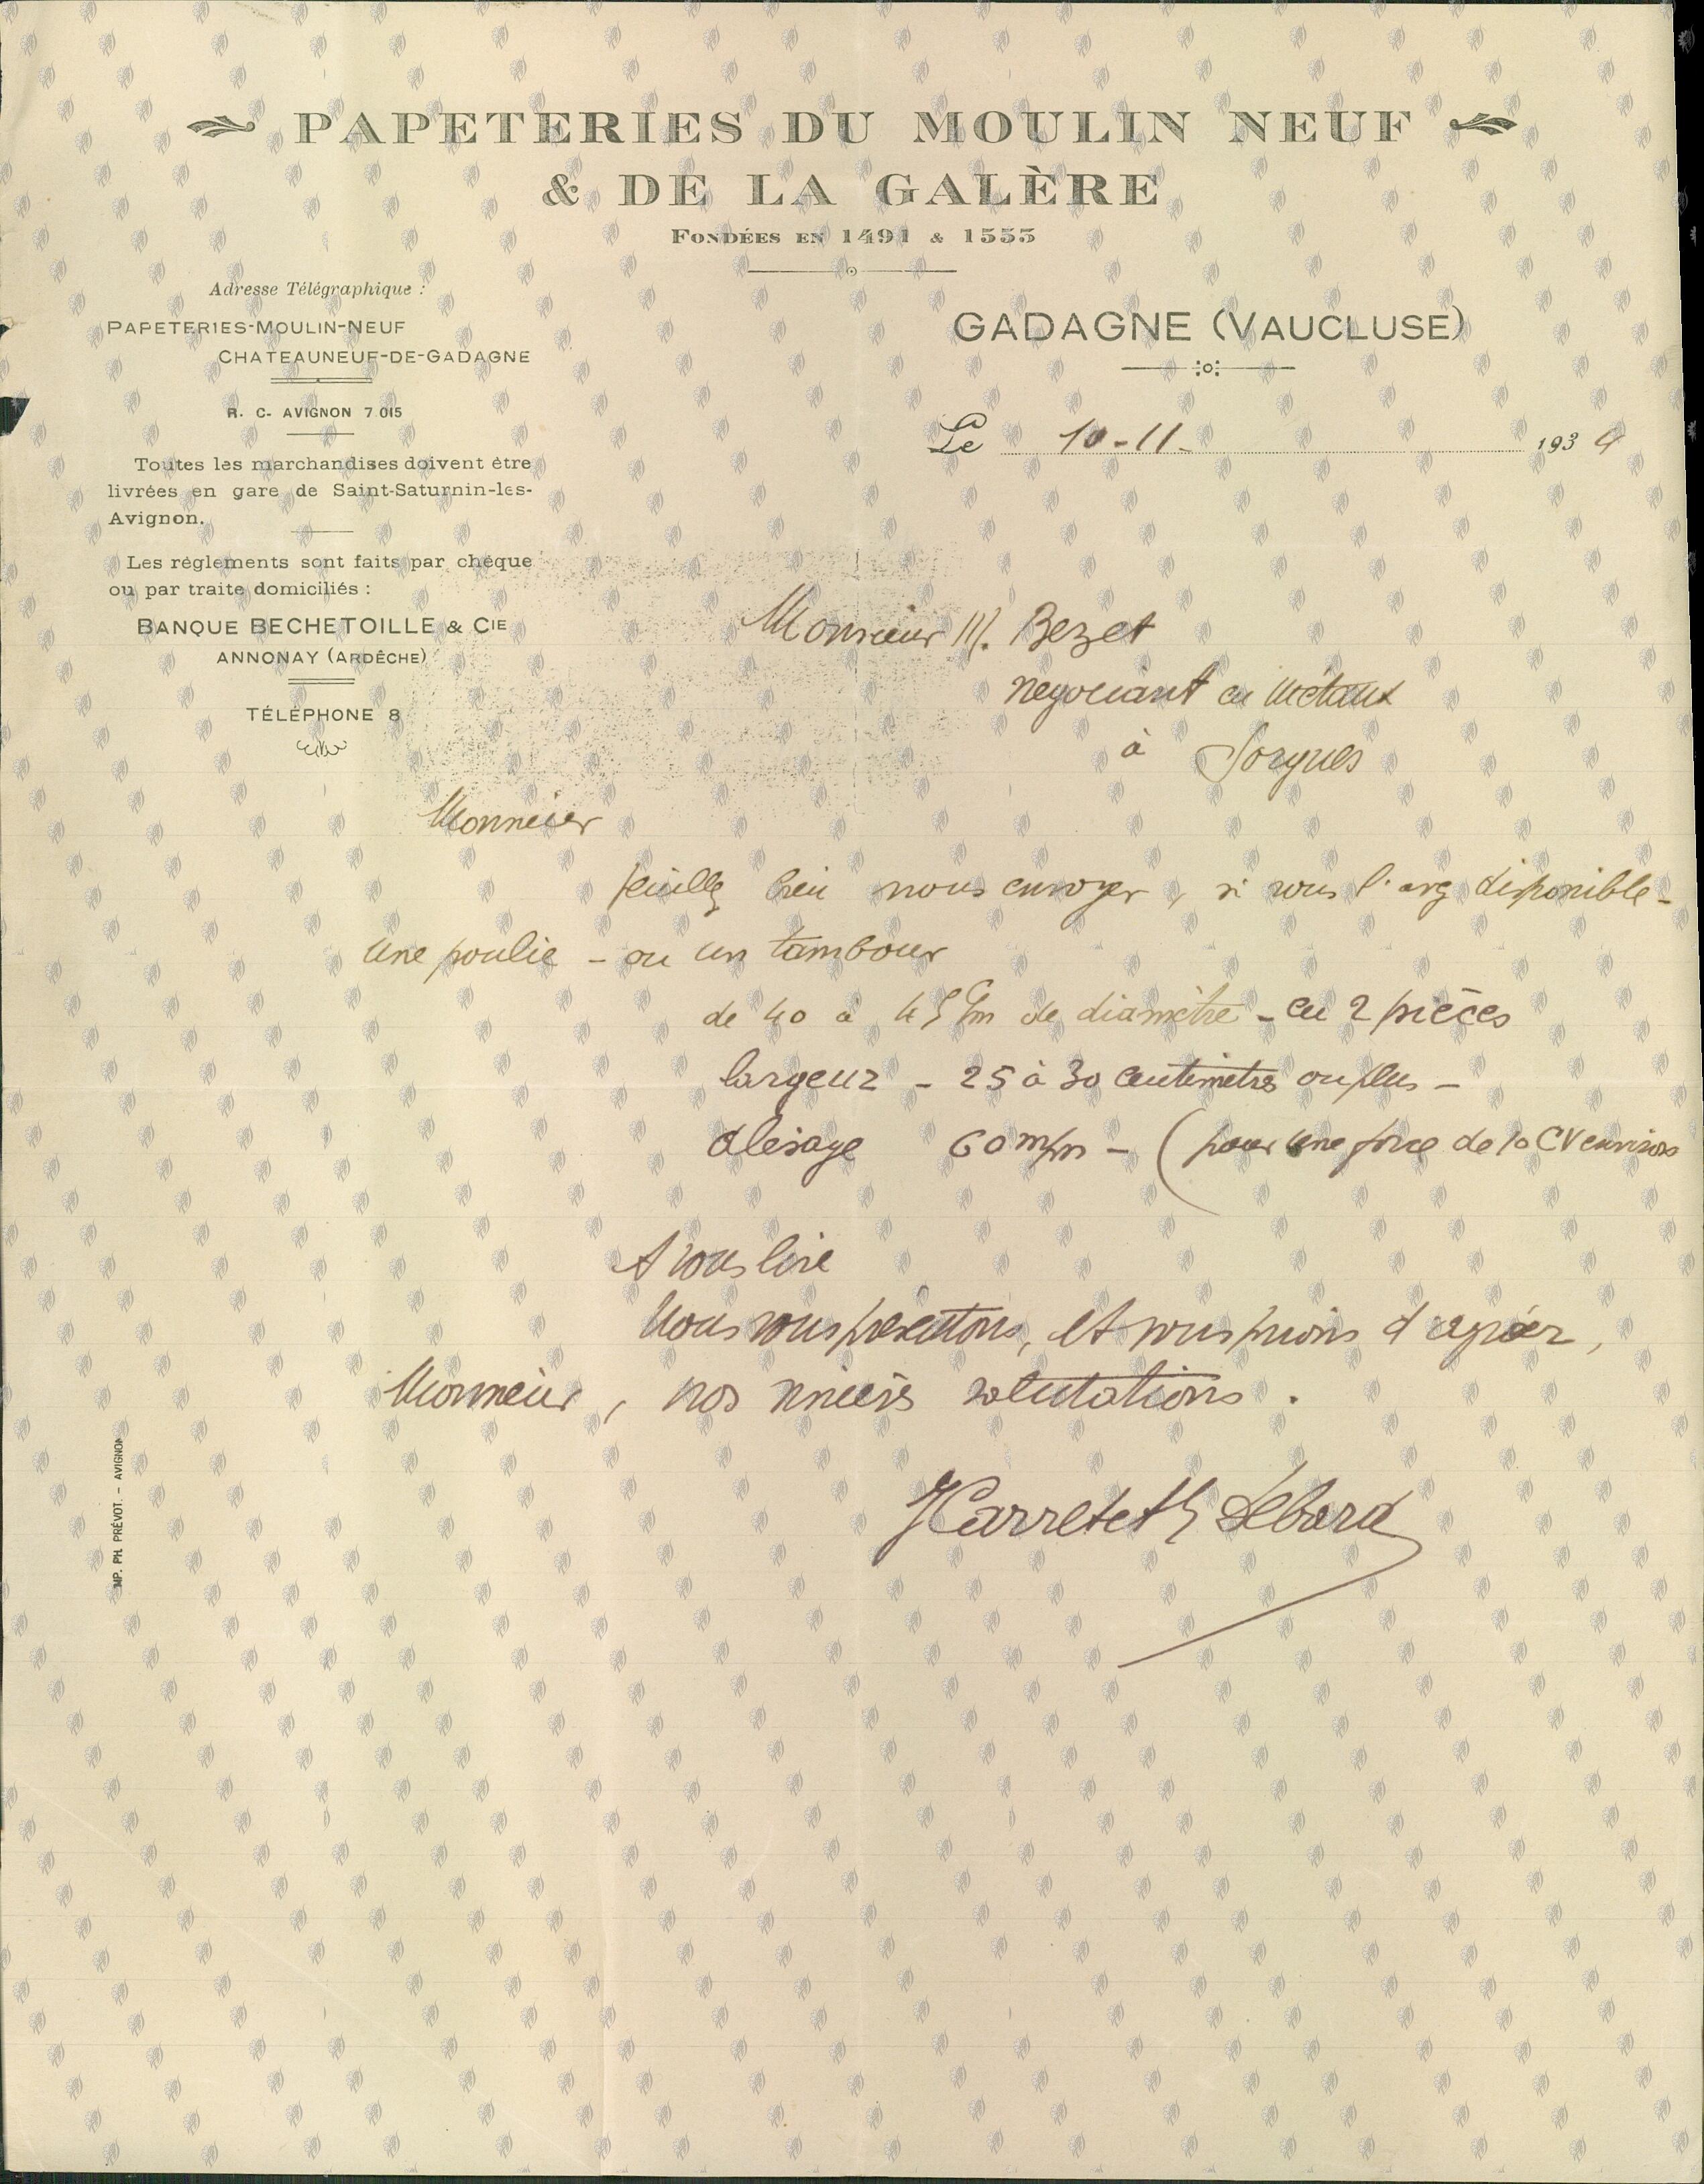 PAPETERIES DU MOULIN NEUF
& DE LA GALÈRE
FONDÉES EN 1491 & 1555
Adresse Télégraphique :
PAPETERIES-MOULIN-NEUF
CHATEAUNEUF-DE-GADAGNE
R. C. AVIGNON 7 015
Toutes les marchandises doivent être
livrées en gare de Saint-Saturnin-les-
Avignon.
Les règlements sont faits par chèque
ou par traite domiciliés :
BANQUE BECHETOILLE & CIE
ANNONAY (ARDÈCHE)
TÉLÉPHONE 8
GADAGNE (VAUCLUSE)
Le 10-11- 1934
Monsieur M. Bezet
négociant en métaux
à Sorgues
Monsieur
Veuillez bien nous envoyer, si vous l'avez disponible -
une poulie - ou un tambour
de 40 à 45 c/m de diamètre - en 2 pièces
largeur - 25 à 30 centimètres ou plus -
alésage 60 m/m - (pour une force de 10 CV environ
A vous lire
Nous vous présentons, et vous prions d'agréer,
Monsieur, nos sincères salutations.
Debard
IMP. PH. PRÉVOT. - AVIGNON